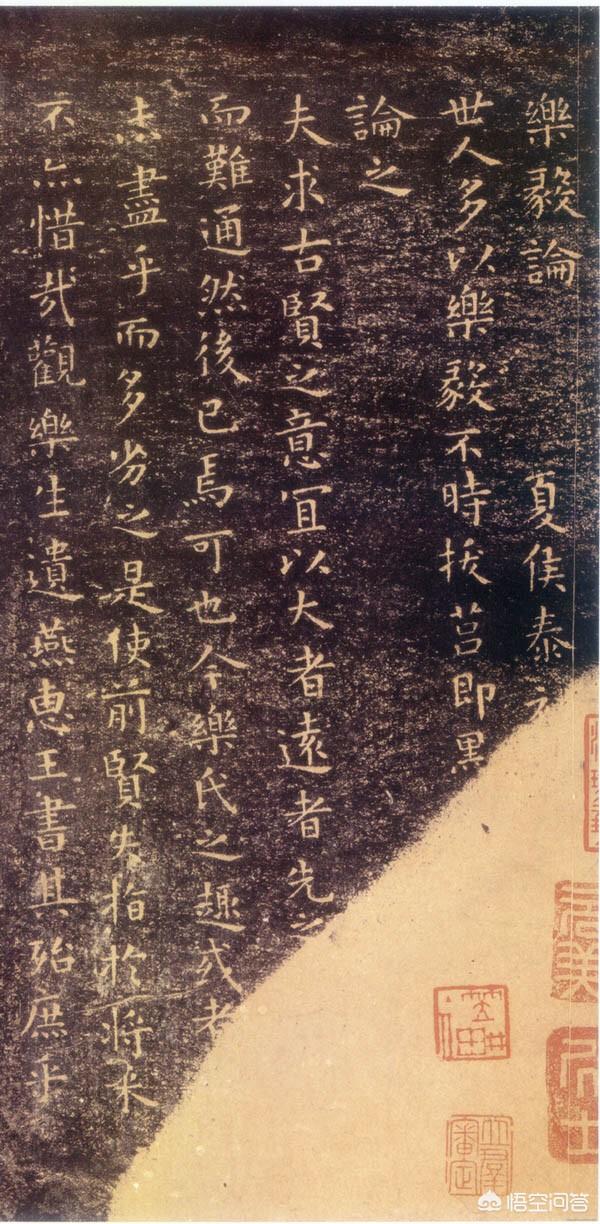 樂毅論 夏侯泰
世人多以樂毅不時拔莒即墨
論之
夫求古賢之意宜以大者遠者先之
而難通然後已焉可也今樂氏之趣或者
未盡乎而多劣之是使前賢失指於將來
不亦惜哉觀樂生遺燕惠王書其殆庶乎
悟空问答